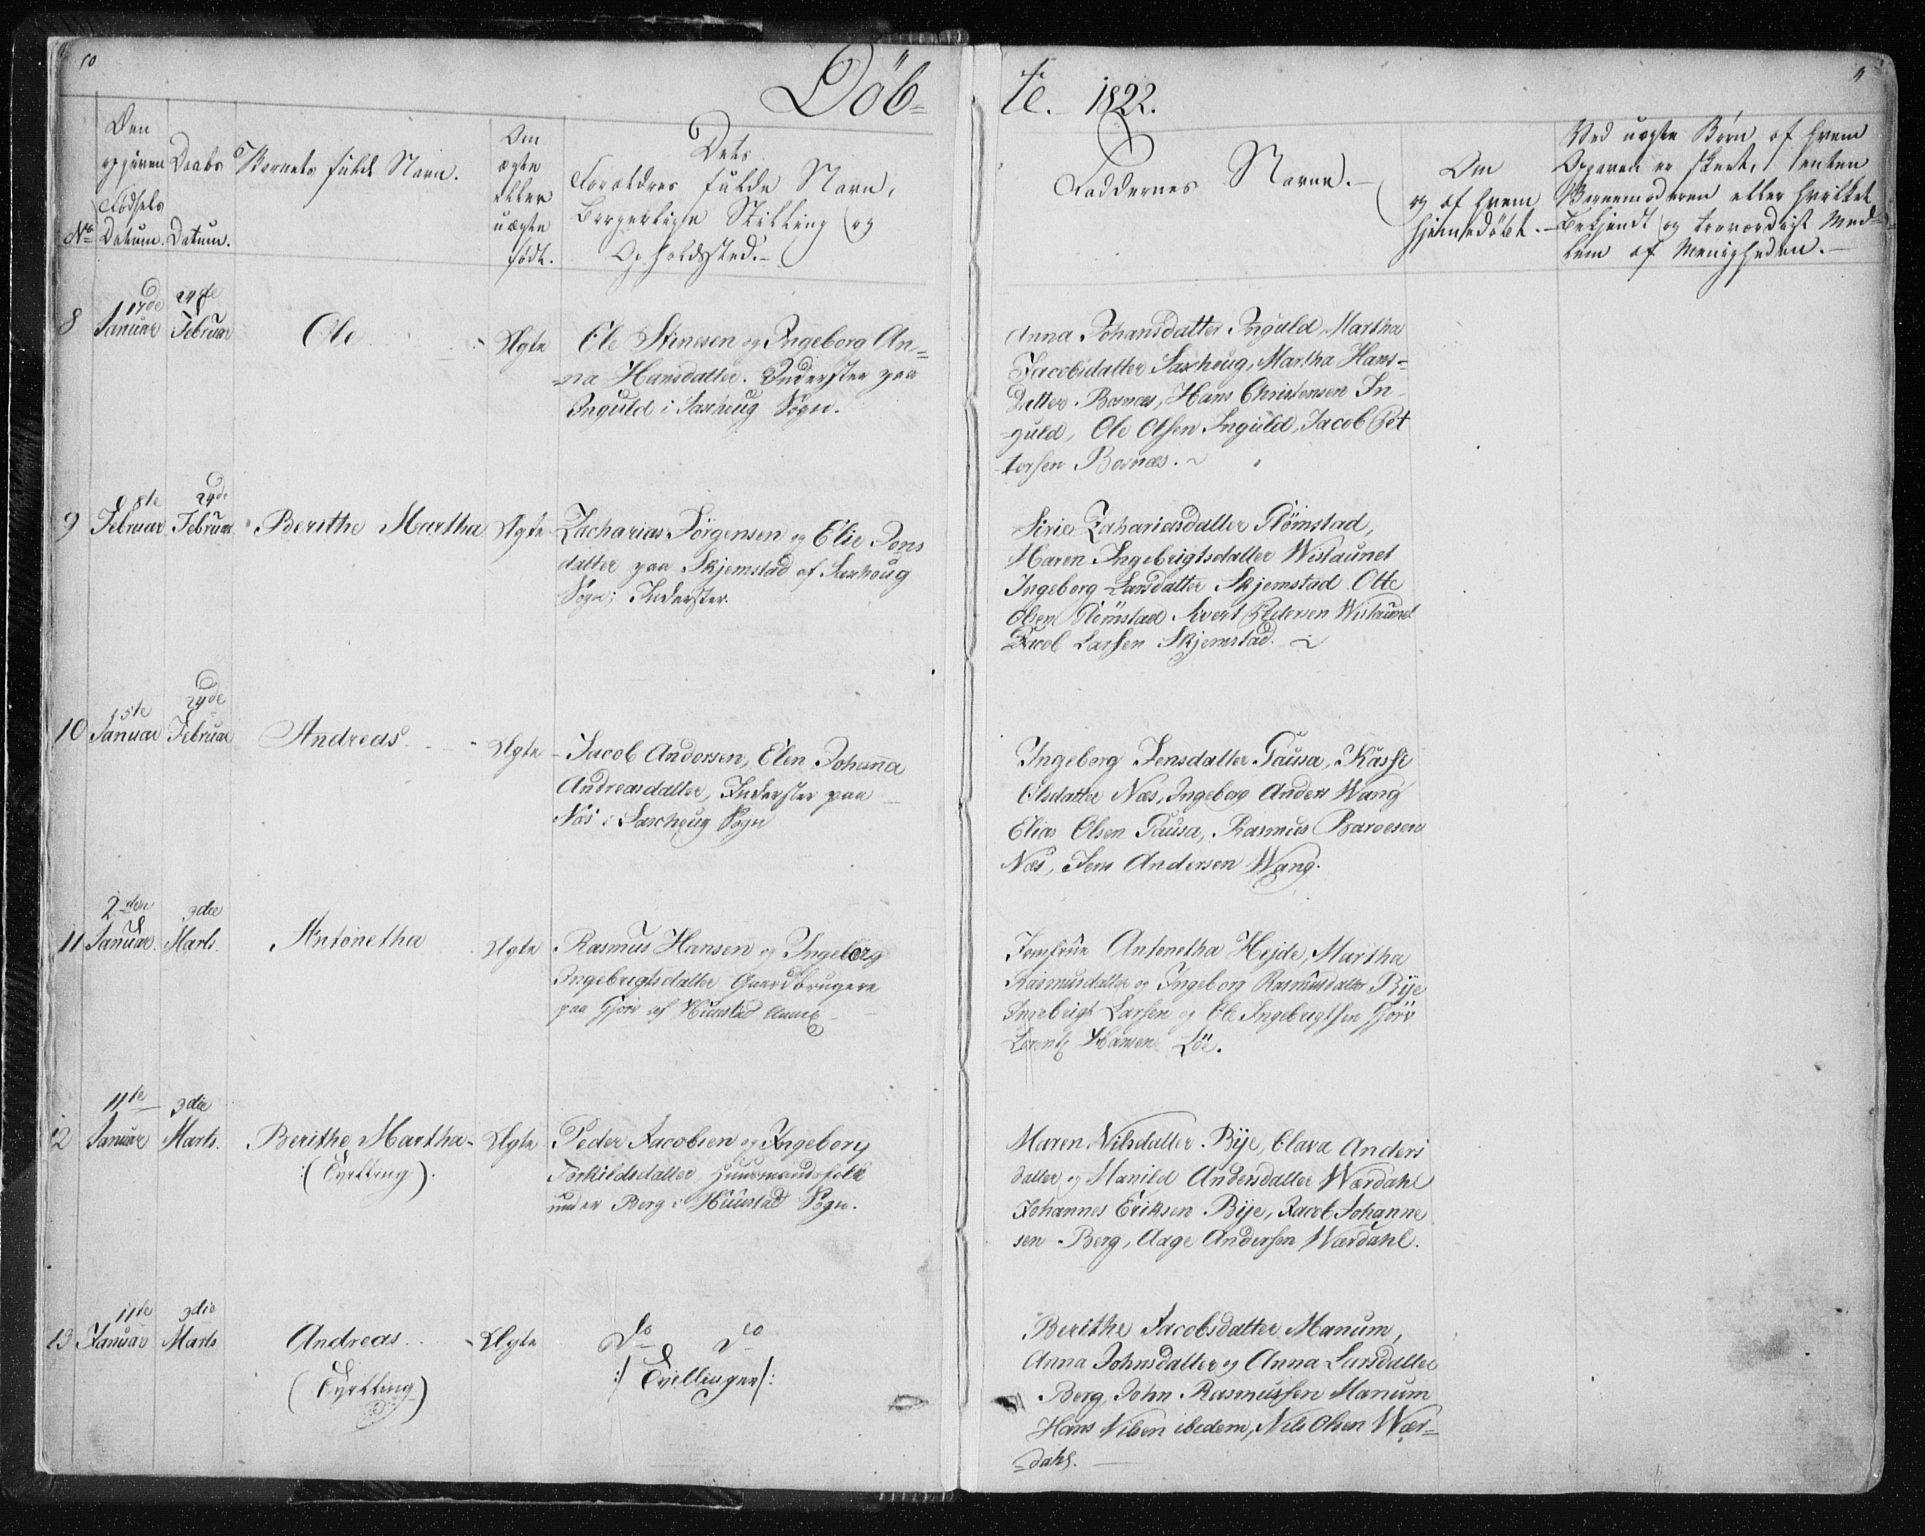 10
Döb-
te. 1822.
11
No
Den opgivne Fødsels Datum.
Daabs Datum.
Barnets fulde Navn.
Om ægte eller uægte født.
Dets Forældres fulde Navn, Borgerlige Stilling og Opholdssted.
Faddernes Navne.
Om og af hvem hjemmedöbt.
Ved uægte Børn af hvem Opgaven er skeet, enten Barnemoderen eller hvilket Bekjendt og troværdigt Medlem af Menigheden.
8
17de Januar
24de Februar
Ole
Ægte
Ole Stenesen og Ingeborg An-
na Hansdatter. Inderster paa
Inguld i Saxhoug Sogn.
Anna Johansdatter Inguld, Martha
Jacobsdatter Saxhoug, Martha Hans-
datter Bosnæs, Hans Christensen In-
guld, Ole Olsen Inguld, Jacob Pet
tersen Bosnæs.
9
8te Februar
24de Februar
Berithe Martha
Ægte
Zacharias Jörgensen og Elie Jons
datter paa Skjemstad af Saxhoug
Sogn; Inderster.
Siri Zahariasdatter Römstad,
Haren Ingebrigtsdatter Wistaunet
Ingeborg Larsdatter Skjemstad Otte
Olsen Römstad Sivert Pedersen Wistaunet
Jacob Larsen Skjemstad.
10
15te Januar
24de Februar
Andreas
Ægte
Jacob Andorsen, Elen Johanna
Andreasdatter, Inderster paa
Næs i Saxhoug Sogn
Ingeborg Jensdatter Tausa, Kasse
Olsdatter Næs, Ingeborg Anders Wang
Elias Olsen Tausa, Rasmus Baroesen
Næs, Jens Andersen Wang.
11
2den Januar.
3die Marts.
Antonetha
Ægte
Rasmus Hansen og Ingeborg
Ingebrigtsdatter Gaardbrugere
paa Gjörv af Huustad Annex
Jomfrue Antonetha Hejde, Martha
Rasmusdatter og Ingeborg Rasmusdatter Bye
Ingebrigt Larsen og Ole Ingebrigtsen Gjörv
Lorentz Hansen Löe.
12
11te Januar
3die Marts.
Berithe Martha
:(Tvilling).
Ægte
Peder Jacobsen og Ingeborg
Torkildsdatter Huusmandsfolk
under Berg i Huustad Sogn.
Maren Nilsdatter Bye, Clara Anders
datter og Marild Andersdatter Wærdahl
Johannes Eriksen Bye, Jacob Johanne
sen Berg, Aage Andersen Wærdahl.
13
11te Januar
3die Marts
Andreas
(Tvilling)
Ægte
Do Do
:/ Tvillinger /:
Berithe Jacobsdatter Manum,
Anna Johnsdatter og Anna Larsdatter
Berg, John Rasmussen Manum
Hans Nilsen ibidem, Nils Olsen Wær-
dahl.